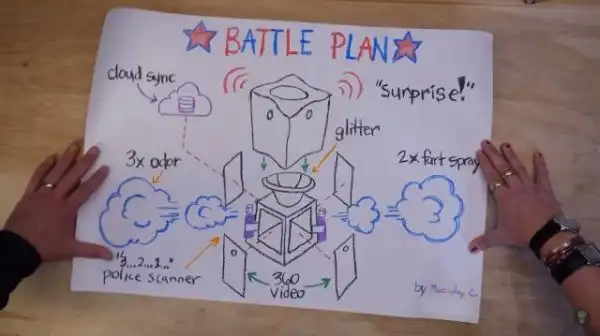 BATTLE PLAN
cloud sync
"Surprise!"
glitter
3x odor
2x fart spray
"3...2...1..."
police scanner
360
video
by Macaulay C.